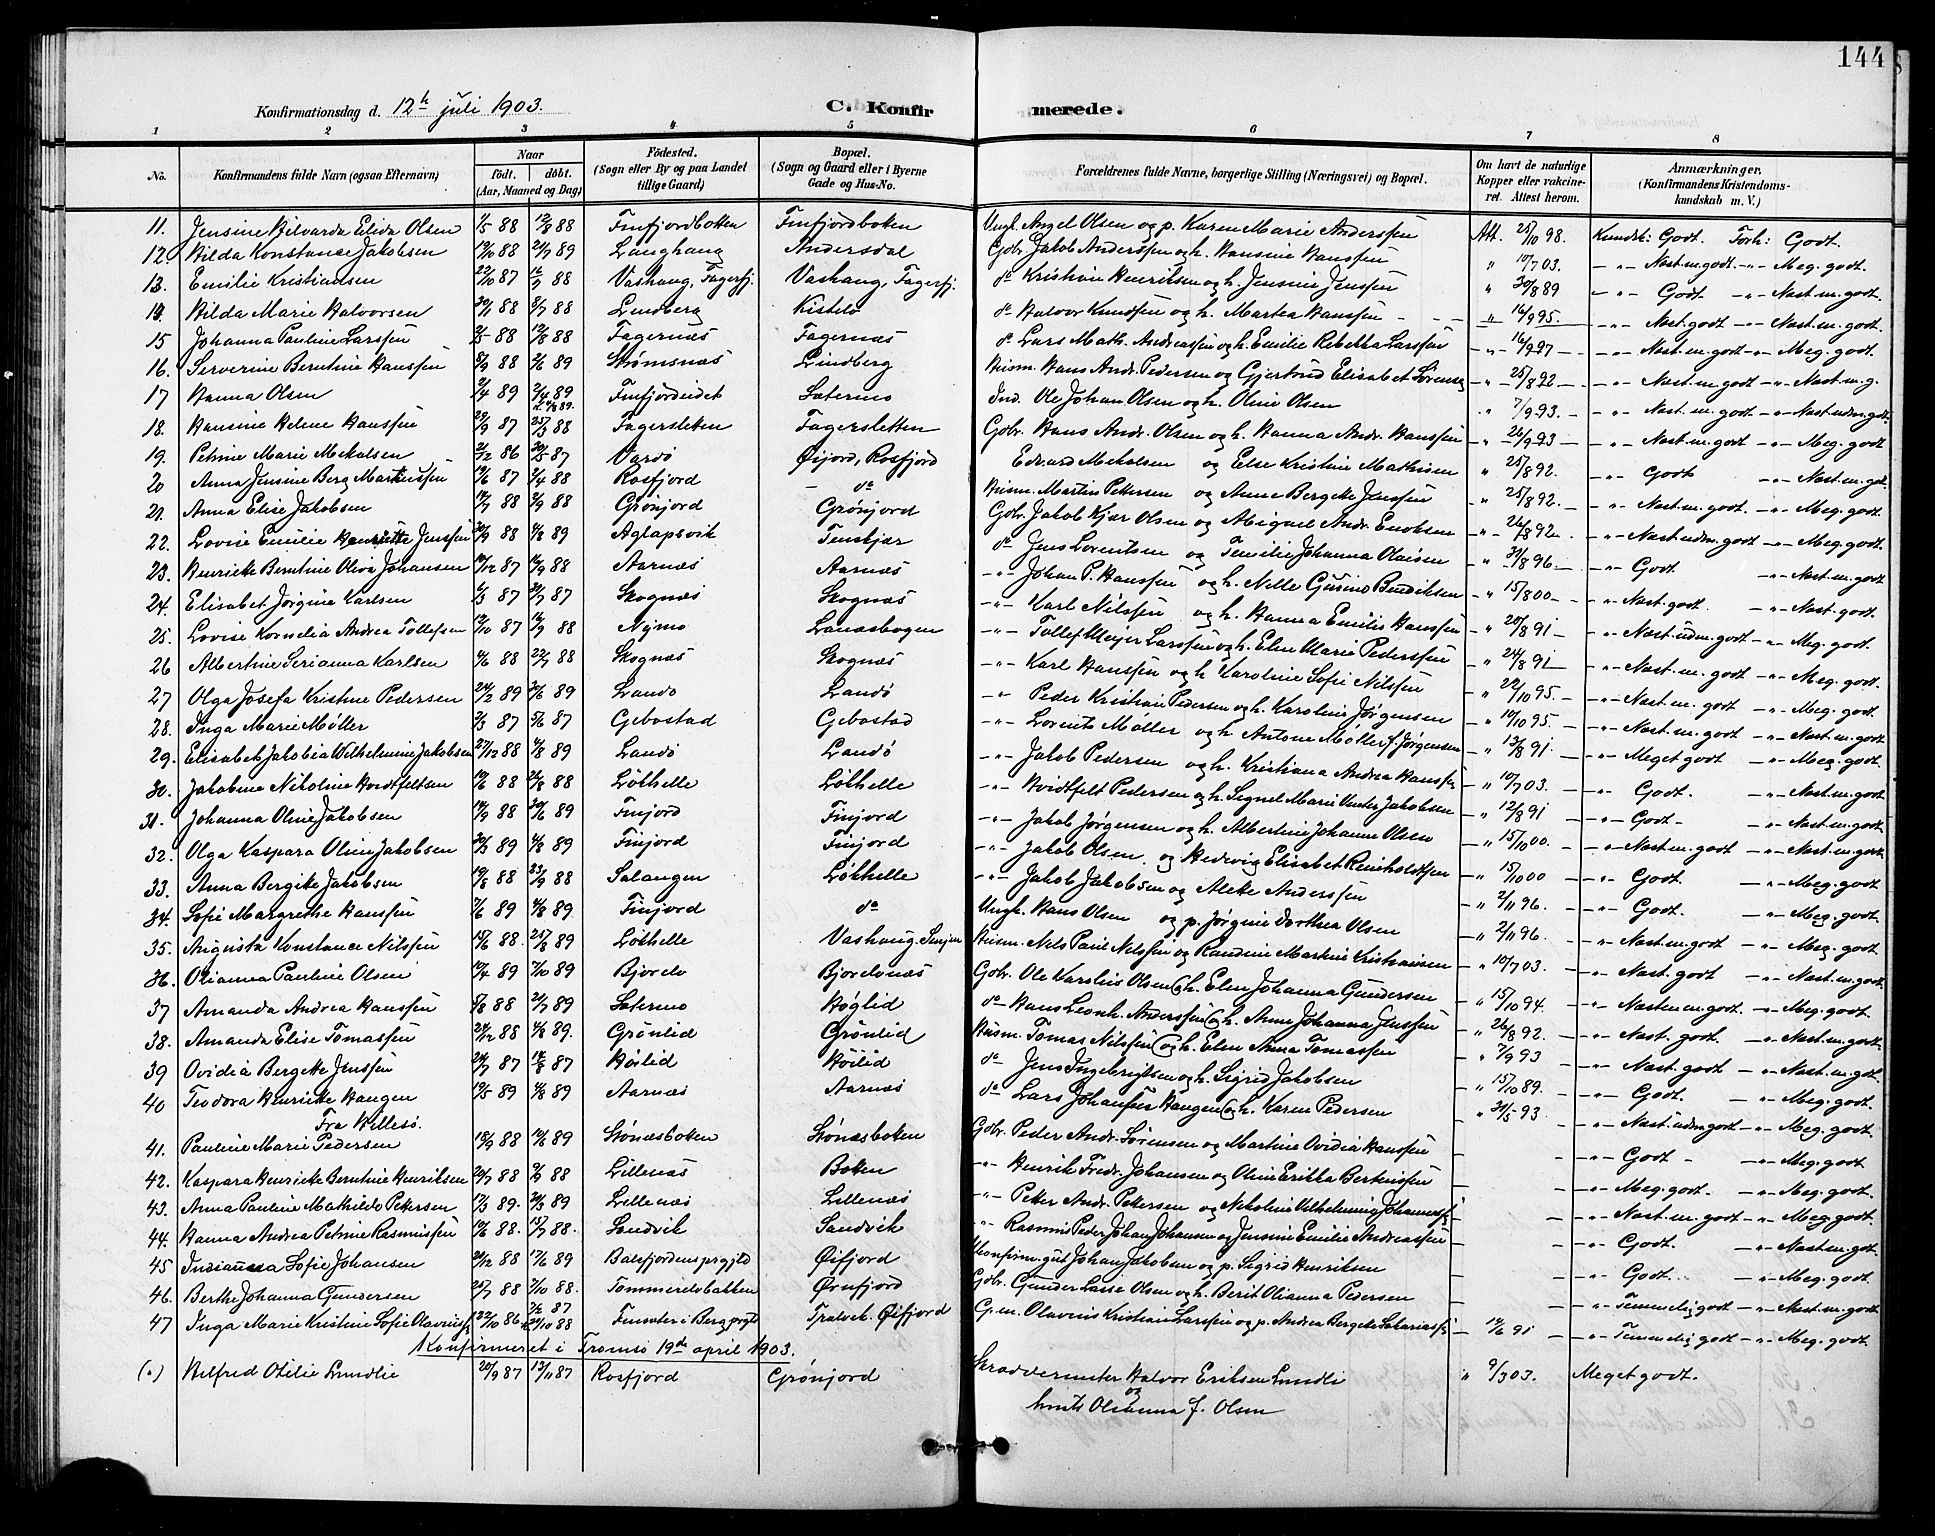 144
Konfirmationsdag d. 12te juli 1903. C. Konfir merede.
1 2 3 4 5 6 7 8
No. Konfirmandens fulde Navn (ogsaa Efternavn) Naar födt. döbt. (Aar, Maaned og Dag) Födested. (Sogn eller By og paa Landet tillige Gaard) Bopæl. (Sogn og Gaard eller i Byerne Gade og Hus-No. Forældrenes fulde Navne, borgerlige Stilling (Næringsvei) og Bopæl. Om havt de naturlige Kopper eller vakcineret. Attest herom. Anmærkninger. (Konfirmandens Kristendomskundskab m. V.)
11. Jensine Hilvarda Elida Olsen 1/5 88 12/8 88 Finfjordbotten Finfjordboten Ungk. Angel Olsen og p. Karen Marie Anderssen Att. 25/10 98. Kundsk: Godt. Forh: Godt.
12. Hilda Konstance Jakobsen 19/10 88 21/7 89 Langhaug Andersdal Gdbr. Jakob Anderssen og h. Hansine Hanssen " 10/7 03. -"- Nast.m.godt. -"- Meg. godt.
13. Emilie Kristiansen 22/10 87 88 Vashaug, Fagerfj. Vashaug, Fagerfj. do Kristian Henriksen og h. Jensine Jenssen " 30/8 89 -"- Godt -"- Nast.m.godt.
14. Hilda Marie Halvorsen 30/1 88 8/7 88 Lindberg Kistelo do Halvor Knudsen og h. Martea Hanssen " 16/9 95. -"- Nast. godt -"- Nast.m.godt.
15 Johanna Pauline Larssen 88 12/8 88 Fagernæs Fagernæs do Lars Math. Andreassen og h. Emilie Rebekka Larssen -"- 16/9 97 -"- Nast.m.godt -"- Meg. godt.
16. Serverine Berntine Hanssen 8/9 88 2/6 89 Strømsnæs Lindberg Husm. Hans Andr. Pedersen og Gjertrud Elisabet Sörens. " 25/8 92 -"- Nast.m.godt -"- Nast.m.g.
17 Hanna Olsen 2/4 89 2/4 89 Finfjordeidet Sætermo Ind. Ole Johan Olsen og h. Oline Olsen " 7/9 93. -"- Nast.m.godt -"- Nast.udm.godt.
18. Hansine Helene Hanssen 29/9 87 25/3 88 Fagersletten Fagersletten Gdbr. Hans Andr. Olsen og h. Hanna Andr. Hanssen " 26/9 93 -"- Nast.m.godt -"- Meg. godt
19. Petrine Marie Mekalsen 2/12 86 30/5 87 Vardö Øijord, Rosfjord Edvard Mekalsen og Else Kristine Mathisen " 25/8 92. -"- Godt -"- Nast.m.godt.
20 Anna Jensine Berg Martinssen 19/6 87 2/4 88 Rosfjord - do Husm. Martin Pettersen og Anne Bergete Jenssen " 25/8 92. -"- Nast.m.godt. -"- Meg. godt.
21. Anna Elise Jakobsen 14/7 88 2/9 88 Grönjord Grönjord Gdbr. Jakob Kjær Olsen og Abigael Andr. Enoksen " 26/8 92 -"- Nast.udm.godt -"- Meg. godt.
22. Lovise Emilie Henriette Jenssen 30/9 88 4/8 89 Aglapsvik Tenskjær do Jens Lorentsen og Temilie Johanna Olaisen " 31/8 96. -"- Godt -"- Nast.m.godt.
23. Henriette Berntine Oliva Johansen 10/12 87 16/9 88 Aarnæs Aarnæs -"- Johan P. Hanssen og h. Nelle Gurina Bendiksen " 15/8 00 -"- Nast. godt. -"- Nast.m.godt.
24. Elisabet Jørgine Karlsen 6/3 87 30/7 87 Skognæs Skognæs -"- Karl Nilssen og h. Hanna Emilie Hanssen " 20/8 91 -"- Nast.udm.godt -"- Meg. godt.
25. Lovise Kornelia Andrea Tollefsen 12/10 87 16/9 88 Nymo Lanæsbogen -"- Tollef Meyer Larssen og h. Elen Marie Pederssen " 24/8 91 -"- Nast.m.godt. -"- Meg. godt.
26 Albertine Serianna Karlsen 4/6 88 22/7 88 Skognæs Skognæs -"- Karl Hanssen og h. Karoline Sofie Nilssen " 22/10 95. -"- Nast.m.godt -"- Meg. godt.
27 Olga Josefa Kristine Pedersen 24/2 89 30/6 89 Landö Landö -"- Peder Kristian Pedersen og h. Karoline Jørgensen " 10/10 95. -"- Nast.m.godt -"- Meg. godt.
28. Inga Marie Møller 2/3 87 5/6 87 Gebostad Gebostad -"- Lorentz Möller og h. Antone Möller f. Jørgensen " 13/8 91. -"- Meget godt -"- Nast.m.godt.
29. Elisabet Jakobia Wilhelmine Jakobsen 27/12 88 4/8 89 Landö Landö -"- Jakob Pedersen og h. Kristiana Andrea Hanssen " 10/7 03. -"- Godt. -"- Meg. godt.
30. Jakobine Nikoline Hvidtfeltsen 19/6 88 26/8 88 Löthelle Löthelle -"- Hvidtfelt Pedersen og h. Signel Marie Jakobsen " 12/8 91 -"- Godt. -"- Nast.m.godt
31. Johanna Oline Jakobsen 14/9 88 30/6 89 Finjord Finjord -"- Jakob Jørgensen og h. Albertine Johanna Olsen " 15/10 00. -"- Nast.m.godt -"- Nast.m.godt.
32. Olga Kaspara Oline Jakobsen 30/3 89 4/8 89 Finjord Finjord -"- Jakob Olsen og Hedevig Elisabet Reinholdtsen " 15/10 00 -"- Godt. -"- Nast.m.godt.
33. Anna Bergitte Jakobsen 19/8 88 23/9 88 Salangen Löthelle -"- Jakob Jakobsen og Aleke Anderssen " 2/11 96. -"- Godt. -"- Meg. godt.
34. Sofie Margrethe Hanssen 7/6 89 4/8 89 Finjord do Ungk. Hans Olsen og p. Jørgine Dorthea Olsen " 2/11 96. -"- Nast.m.godt -"- Meg. godt.
35. Augusta Konstance Nilssen 15/6 88. 25/8 89 Löthelle Vashaug, Senjen Husm. Nels Parie Nilssen og Randine Martine Kristiansen " 10/7 03. -"- Nast. godt -"- Nast.m.godt.
36. Olianna Pauline Olsen 10/4 89 7/10 89 Bjordo Bjordonæs Gdbr. Ole Karolius Olsen og h. Elen Johanna Gundersen " 15/10 94. -"- Nasten m.godt. -"- Meg. godt.
37 Amanda Andrea Hanssen 8/8 88 21/7 89 Sætermo Høglid do Hans Leonh. Anderssen og h. Anne Johanna Jenssen " 26/8 92. -"- Nast. godt. -"- Nast.m.godt.
38. Amanda Elise Tomassen 24/12 88 4/8 89. Grönlid Grönlid Husm. Tomas Nilssen og h. Elen Anna Tomassen " 7/9 93 -"- Nast. godt -"- Nast.m.godt.
39 Ovidia Bergette Jenssen 24/7 87 14/8 87 Höilid Höilid do Jens Ingebrigtsen og h. Sigrid Jakobsen " 15/10 89. -"- Godt. -"- Meg. godt.
40 Teodora Henriette Haugen 19/5 89 4/8 89 Aarnæs Aarnæs do Lars Johanssen Haugen og h. Karen Pedersen " 31/5 93. -"- Nast.udm.godt -"- Meg. godt.
Fra Hillesö.
41. Pauline Marie Pedersen 15/9 88 12/6 89 Stönæsboten Stönæsboten Gdbr. Peder Andr. Sörensen og Martine Ovidia Hanssen -"- Godt -"- Meg. godt
42. Kaspara Henriette Berntine Henriksen 24/7 88 2/9 88 Lillenæs Boten -"- Henrik Fredr. Johansen og Oline Erikka Berkinssen -"- Meg. godt. -"- Meg. godt.
43. Anna Pauline Mathilde Pettersen 17/3 89. 30/3 89 Lillenæs Lillenæs -"- Petter Andr. Pettersen og Nikoline Vilhelmine Johannesf. -"- Nast.m.godt -"- Meg. godt.
44. Hanna Andrea Petrine Rasmussen 10/6 88. 15/7 88. Sandvik Sandvik -"- Rasmus Peder Johan Johansen og Jensine Emilie Andreassen -"- Godt. -"- Nast.m.godt.
45 Indianna Sofie Johansen 21/12 88 17/6 89 Balsfjordens prgjld Øifjord Ukonfirm. gut Johan Jakobsen og p. Sigrid Henriksen -"- Godt. -"- Meg. godt.
46. Berthe Johanna Gundersen 25/7 88 7/10 88. Tommereidsbakken Ørnfjord Gdbr. Gunder Lasse Olsen og h. Berit Olianna Pedersen -"- Temmelig godt -"- Nast.m.godt.
47 Inga Marie Kristine Sofie Olavinsf. 22/10 86 2/2 87 Finnsæter i Berg prgjld Trælvik. Øifjord G.m. Olavius Kristian Larssen og p. Andrea Bergete Sakariasf. 14/6 91 -"- Temmelig godt -"- Meg. godt.
Konfirmeret i Tromsö 19de april 1903.
(1) Alfred Otelie Lundlie 20/9 87 13/11 87 Rosfjord Grönjord Skræddermester Halvor Eriksen Lundli " 9/3 03. Meget godt.
og
hustr. Olianna f. Olsen